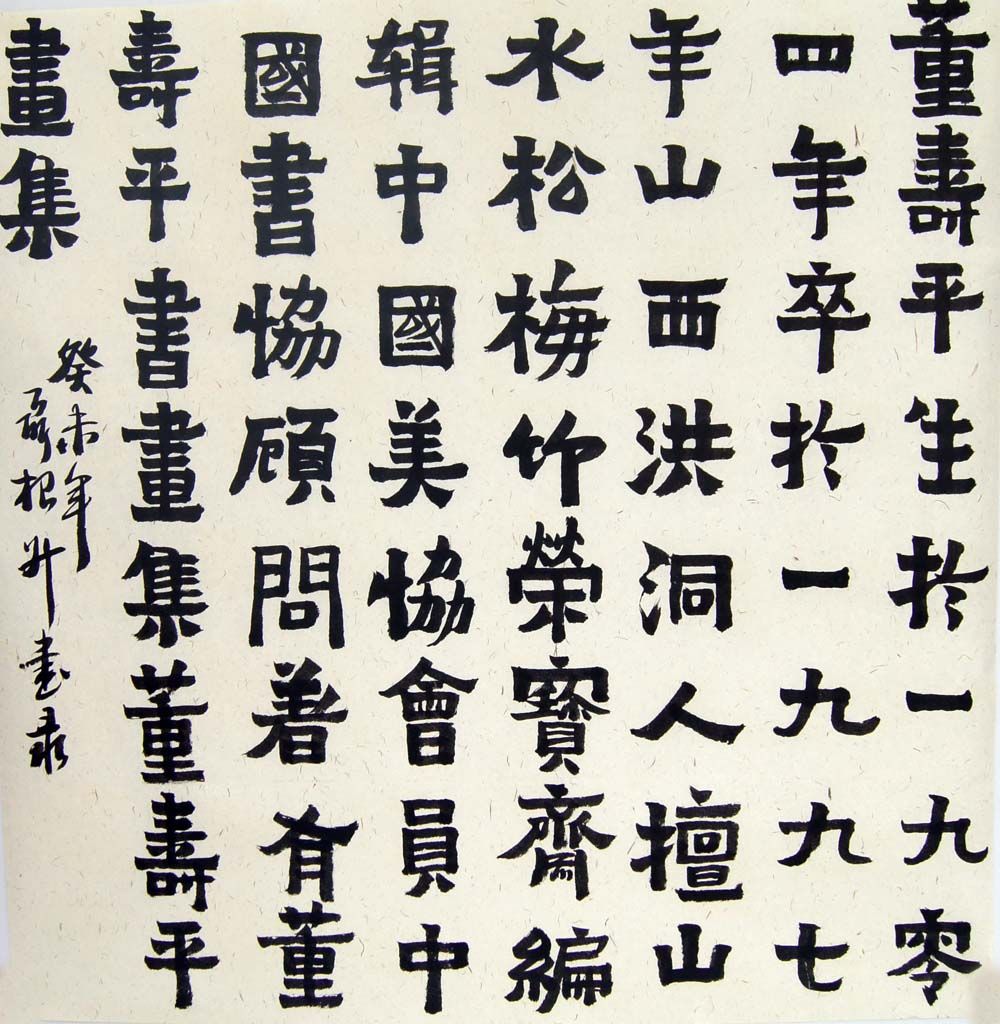 董壽平生於一九零
四年卒於一九九七
年山西洪洞人擅山
水松梅竹榮寶齋編
辑中國美協會員中
國書協顾問著有董
壽平書畫集董壽平
畫集
癸未年
聶根升書录